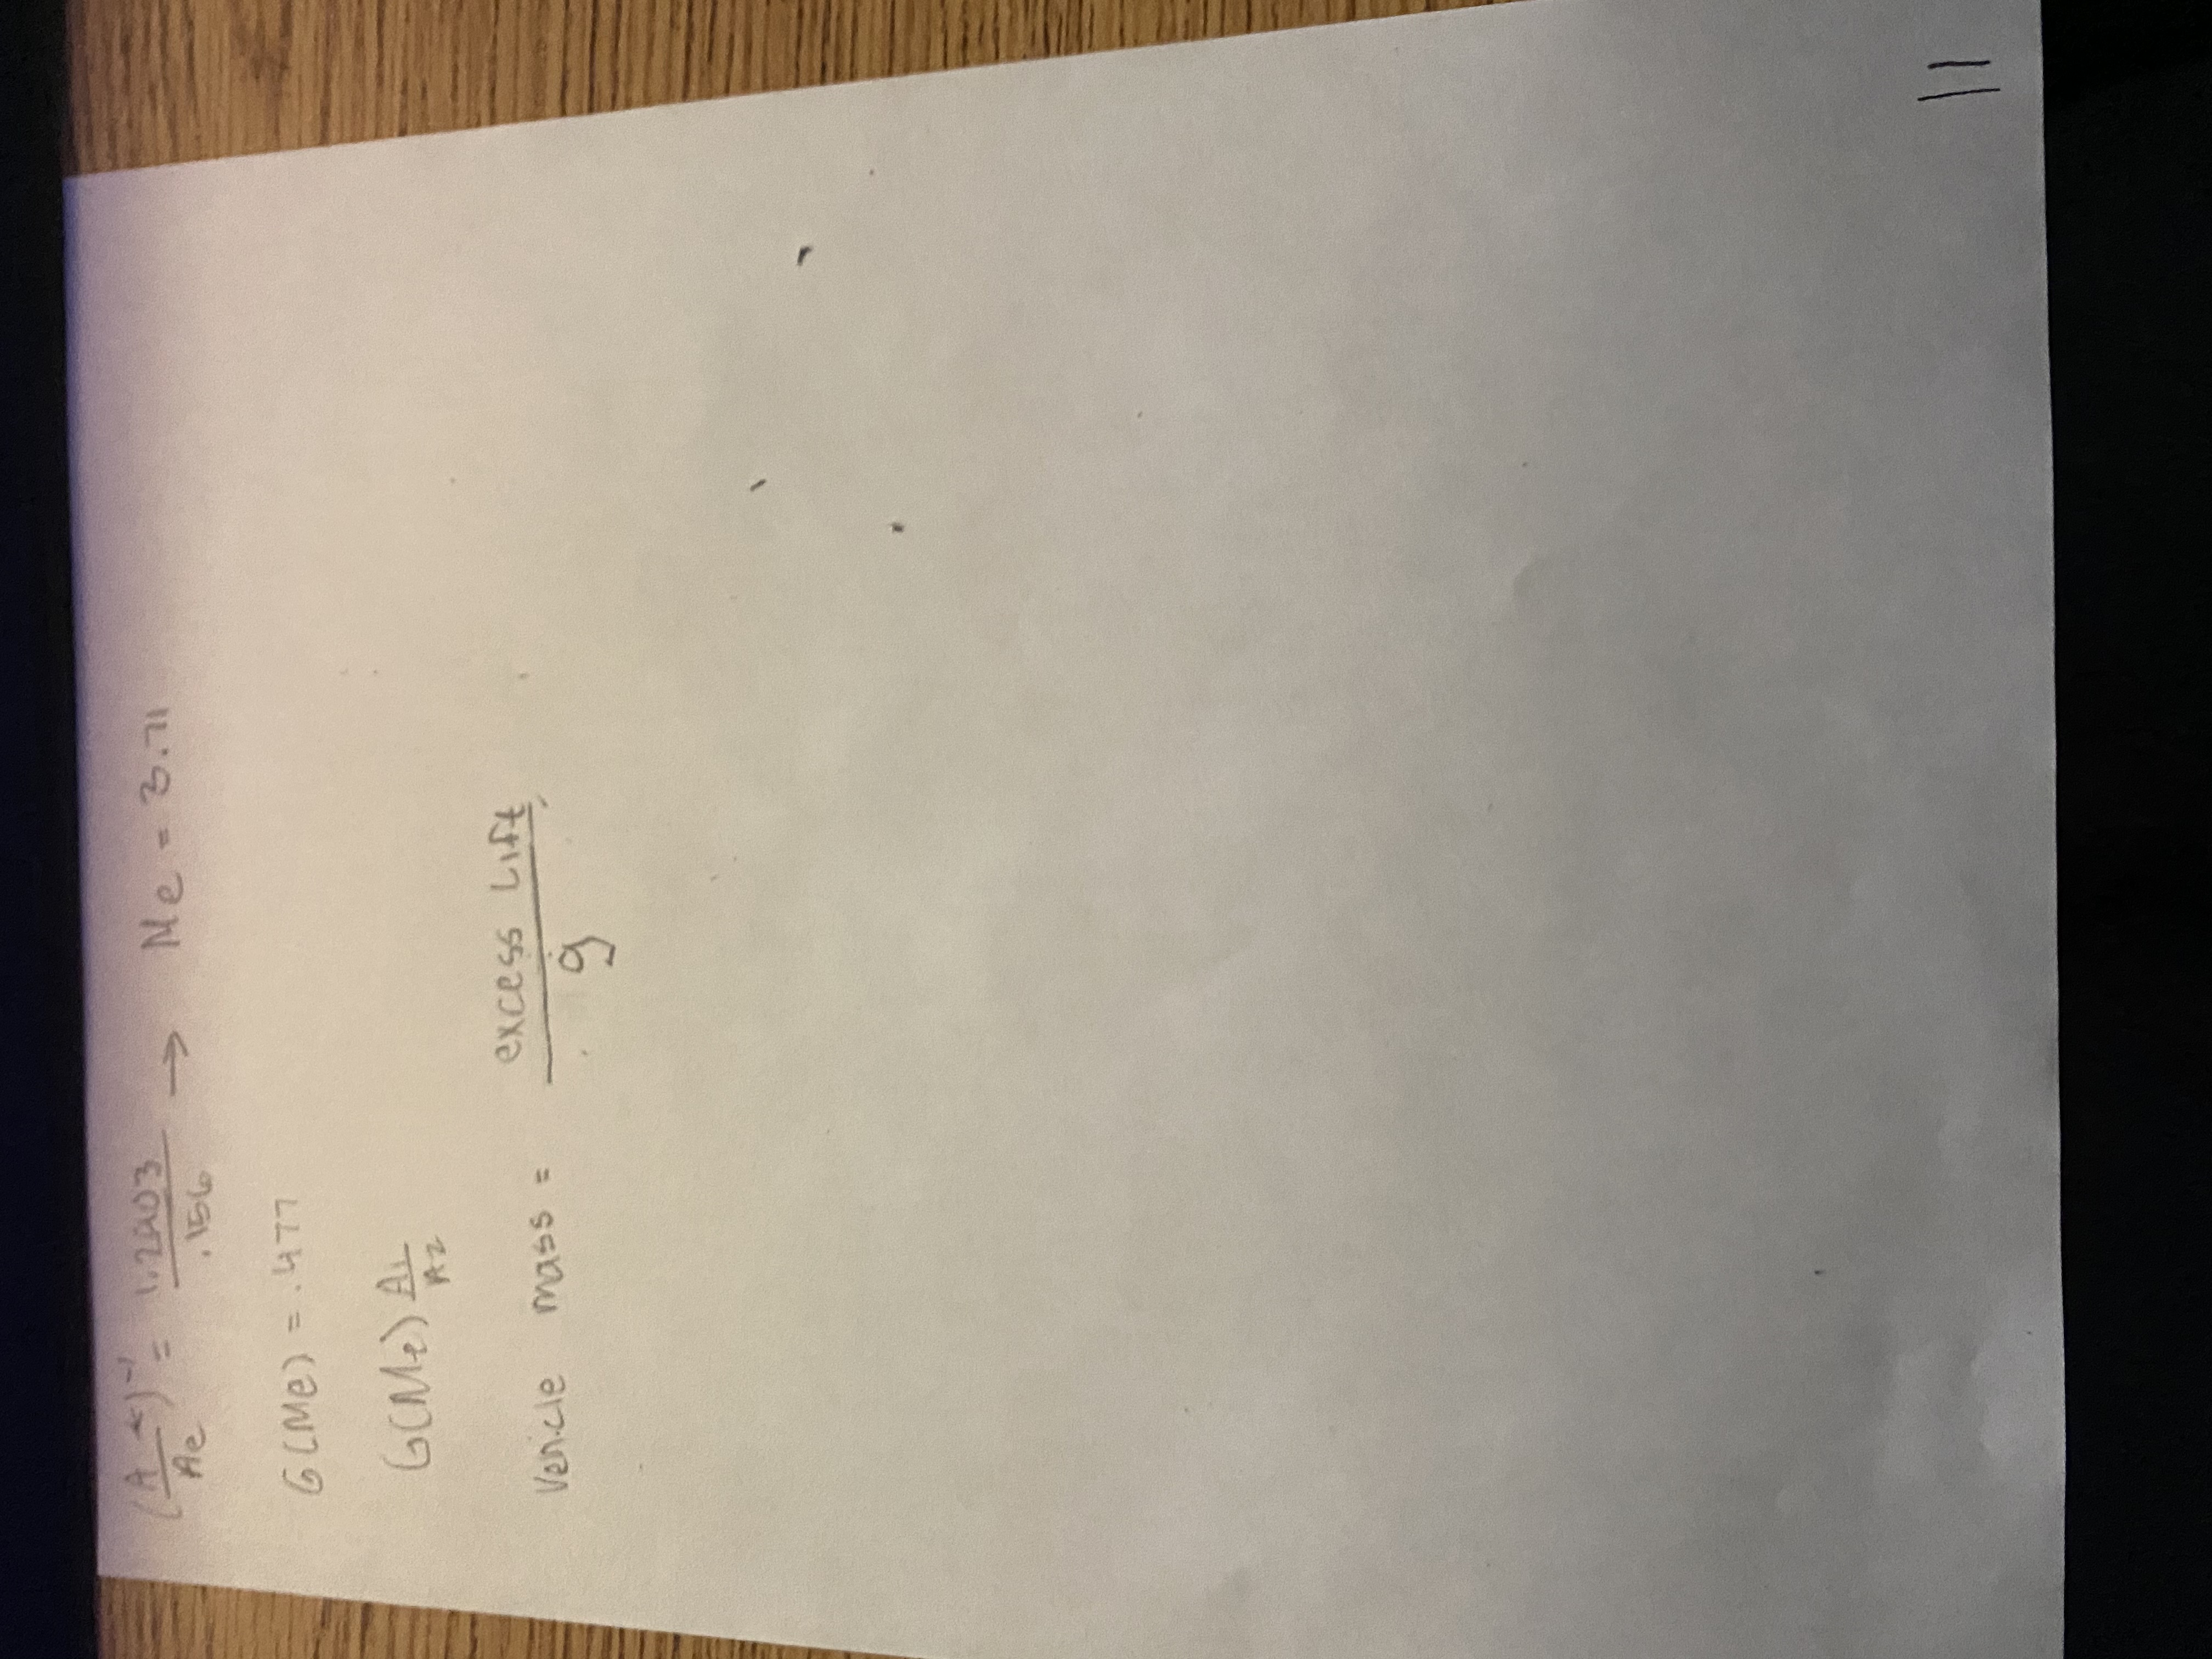 (A*/Ae)^-1 = 1.2903/.156 → Me = 3.71
G(Me) = .477
G(Me) A1/A2
Vehicle mass = excess Lift/g
11